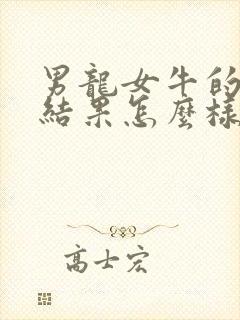 男龍女牛的
結果怎麼樣
高士宏